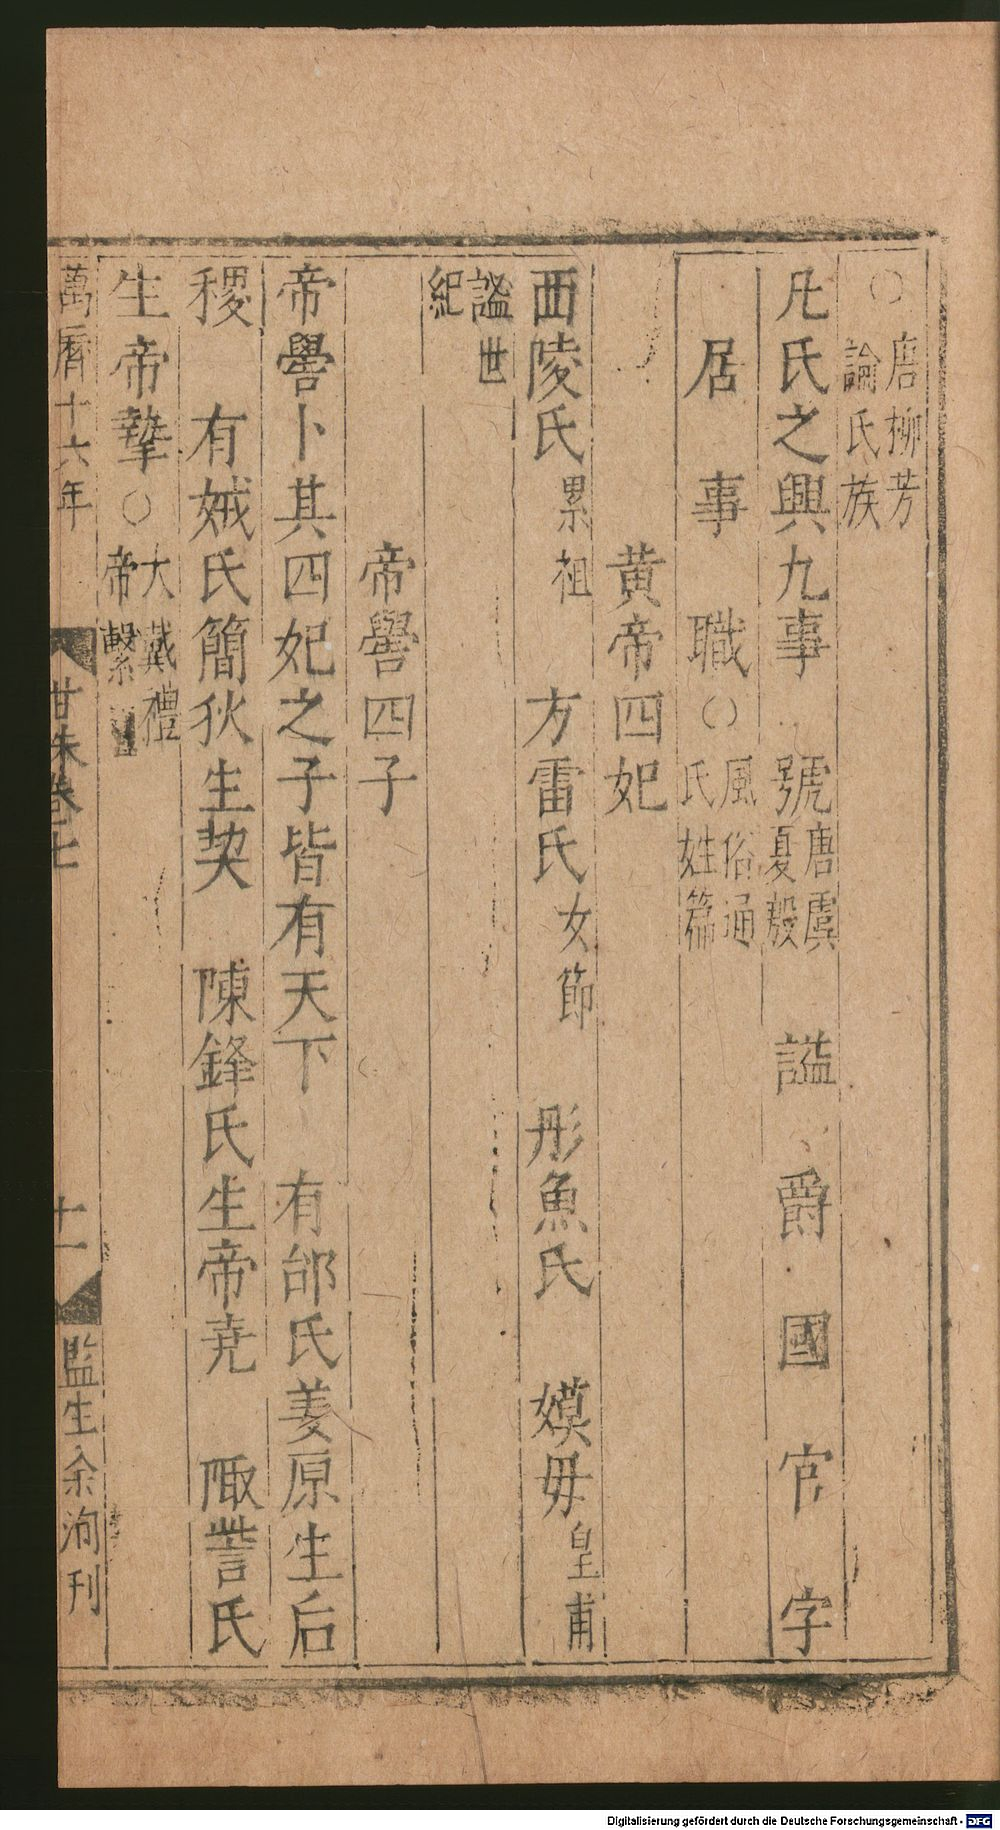 ○唐柳芳論氏族
凡氏之興九事 號唐虞夏殷 諡 爵 國 官 字
居 事 職○風俗通氏姓篇
黄帝四妃
西陵氏累祖 方雷氏女節 彤魚氏 嫫毋皇甫
謐世紀
帝嚳四子
帝嚳卜其四妃之子皆有天下 有邰氏姜原生后
稷 有娀氏簡狄生契 陳鋒氏生帝尭 陬訾氏
生帝摯○大戴禮帝繫
萬曆十六年 甘珠卷七 十一 監生余洵刊
Digitalisierung gefördert durch die Deutsche Forschungsgemeinschaft - DFG